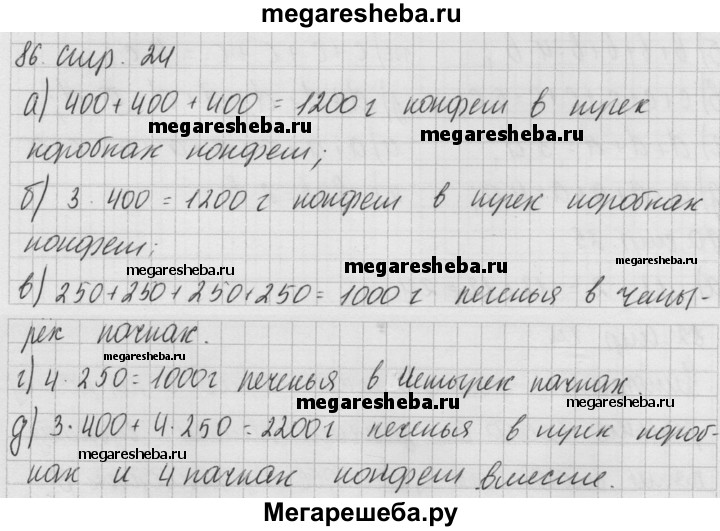 megaresheba.ru
86. стр. 24
а) 400+400+400 = 1200 г конфет в трех
megaresheba.ru megaresheba.ru
коробках конфет;
б) 3 · 400 = 1200 г конфет в трех коробках
конфет;
megaresheba.ru megaresheba.ru megaresheba.ru
в) 250+250+250+250 = 1000 г печенья в четы-
рех пачках.
megaresheba.ru
г) 4 · 250 = 1000 г печенья в четырех пачках.
megaresheba.ru megaresheba.ru
д) 3 · 400 + 4 · 250 = 2200 г печенья в трех короб-
ках и 4 пачках конфет вместе.
megaresheba.ru
Мегарешеба.ру